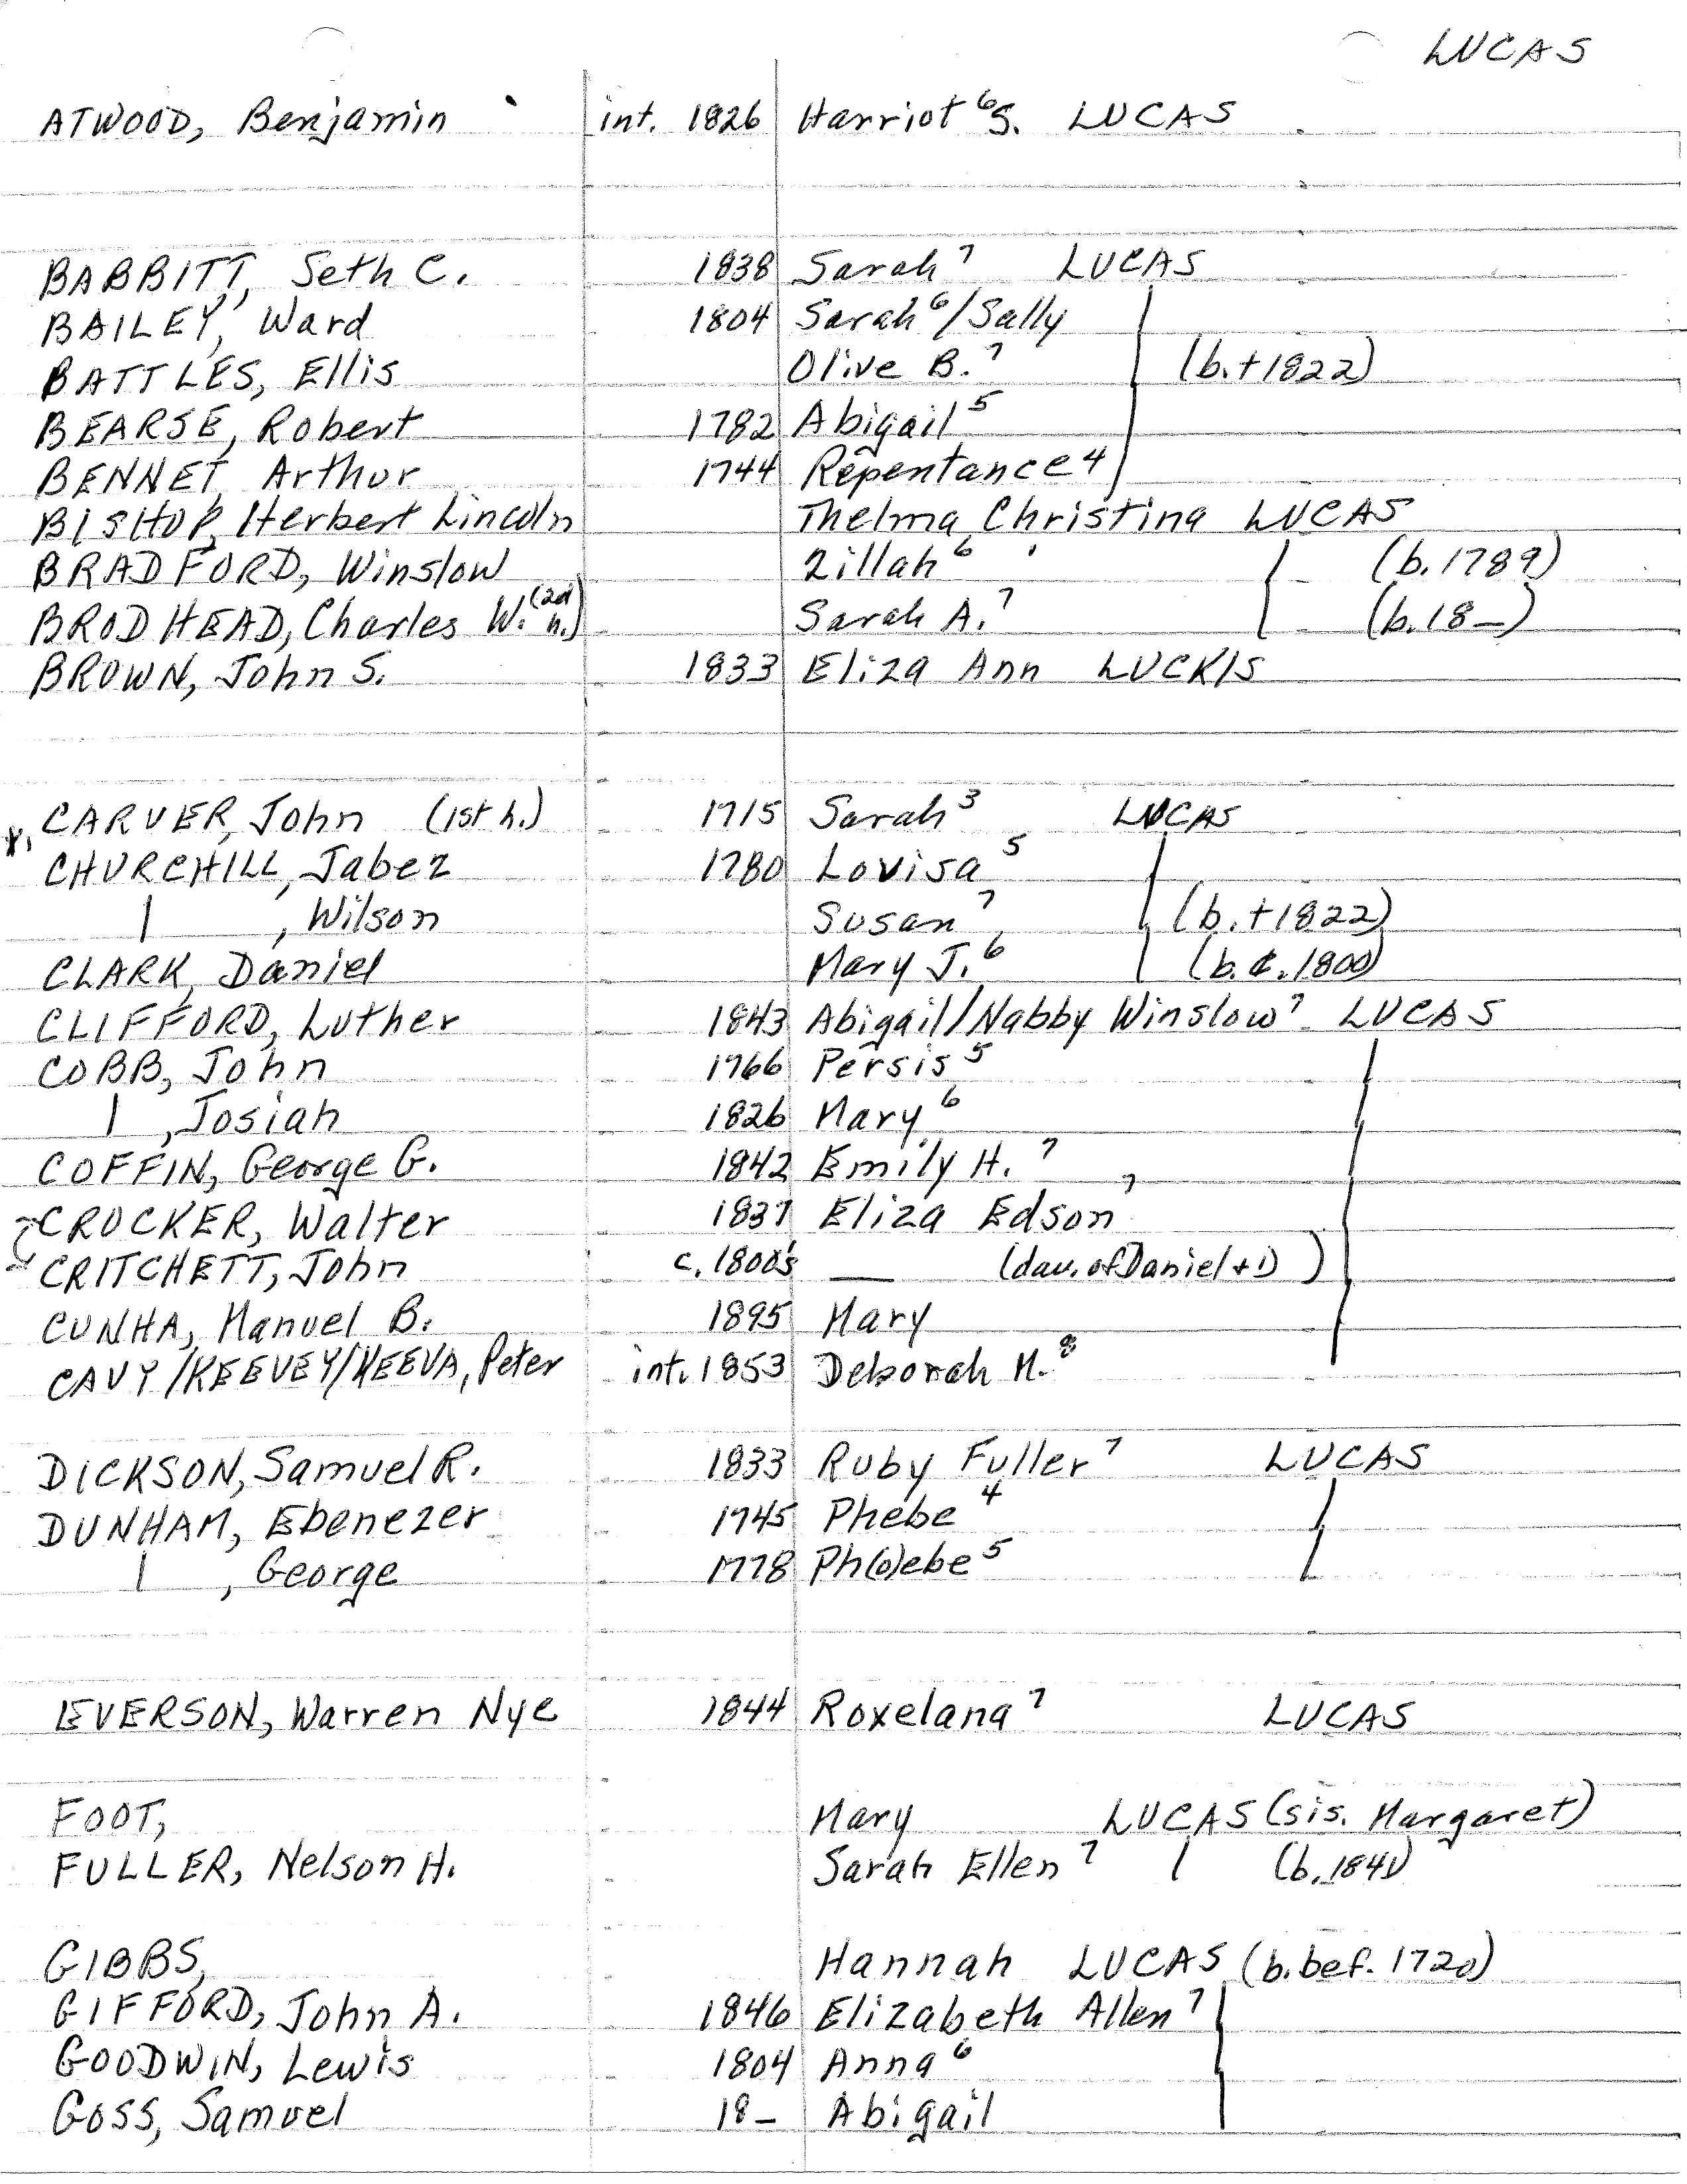 LUCAS
ATWOOD, Benjamin int. 1826 Harriot⁶ S. LUCAS
BABBITT, Seth C. 1838 Sarah⁷ LUCAS
BAILEY, Ward 1804 Sarah⁶/Sally
BATTLES, Ellis Olive B.⁷ (b.+1822)
BEARSE, Robert 1782 Abigail⁵
BENNET, Arthur 1744 Repentance⁴
BISHOP, Herbert Lincoln Thelma Christina LUCAS
BRADFORD, Winslow Zillah⁶ (b.1789)
BRODHEAD, Charles W. (2d h.) Sarah A.⁷ (b.18_)
BROWN, John S. 1833 Eliza Ann LUCK/S
CARVER, John (1st h.) 1715 Sarah³ LUCAS
CHURCHILL, Jabez 1780 Lovisa⁵
| , Wilson Susan⁷ (b.+1822)
CLARK, Daniel Mary J.⁶ (b.c.1800)
CLIFFORD, Luther 1843 Abigail/Nabby Winslow⁷ LUCAS
COBB, John 1766 Persis⁵
| , Josiah 1826 Mary⁶
COFFIN, George G. 1842 Emily H.⁷
CROCKER, Walter 1837 Eliza Edson⁷
CRITCHETT, John c. 1800's ___ (dau. of Daniel + 1)
CUNHA, Manuel B. 1895 Mary
CAVY/KEEVEY/KEEVA, Peter int. 1853 Deborah M.⁸
DICKSON, Samuel R. 1833 Ruby Fuller⁷ LUCAS
DUNHAM, Ebenezer 1745 Phebe⁴
| , George 1778 Ph(o)ebe⁵
EVERSON, Warren Nye 1844 Roxelana⁷ LUCAS
FOOT, Mary LUCAS (sis. Margaret)
FULLER, Nelson H. Sarah Ellen⁷ | (b.1841)
GIBBS, Hannah LUCAS (b.bef. 1720)
GIFFORD, John A. 1846 Elizabeth Allen⁷
GOODWIN, Lewis 1804 Anna⁶
GOSS, Samuel 18_ Abigail